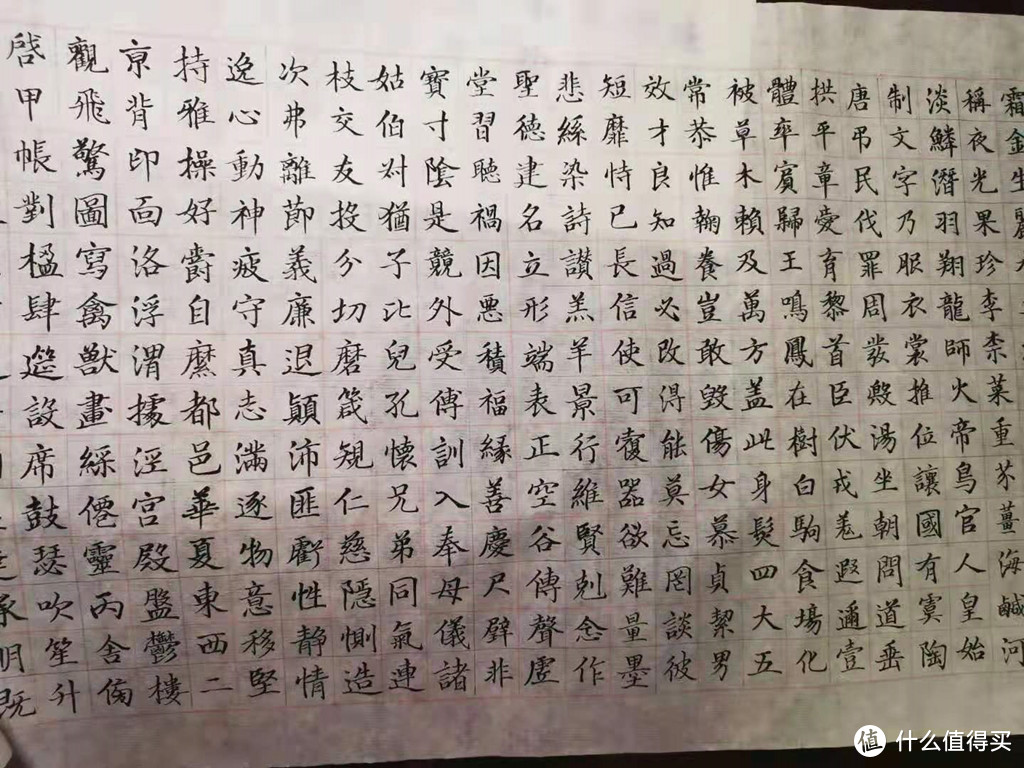 霜金生麗
稱夜光果珍李柰菜重芥薑海鹹河
淡鱗潛羽翔龍師火帝鳥官人皇始
制文字乃服衣裳推位讓國有虞陶
唐弔民伐罪周發殷湯坐朝問道垂
拱平章愛育黎首臣伏戎羌遐邇壹
體率賓歸王鳴鳳在樹白駒食場化
被草木賴及萬方盖此身髮四大五
常恭惟鞠養豈敢毀傷女慕貞絜男
效才良知過必改得能莫忘罔談彼
短靡恃已長信使可覆器欲難量墨
悲絲染詩讃羔羊景行維賢剋念作
聖德建名立形端表正空谷傳聲虛
堂習聽禍因悪積福緣善慶尺璧非
寶寸陰是競外受傅訓入奉母儀諸
姑伯叔猶子比兒孔懷兄弟同氣連
枝交友投分切磨箴規仁慈隠惻造
次弗離節義廉退顛沛匪虧性静情
逸心動神疲守真志滿逐物意移堅
持雅操好爵自縻都邑華夏東西二
亰背邙面洛浮渭據涇宮殿盤鬱樓
觀飛驚圖寫禽獸畫綵僊靈丙舍傍
啓甲帳對楹肆筵設席鼓瑟吹笙升
承明既
值 什么值得买